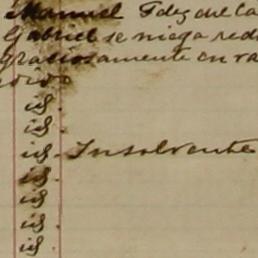 Manuel Fdez del Ca
Gabriel se niega red
graciosamente en ra
id.
id.
id. - Insolvente
id.
id.
id.
id.